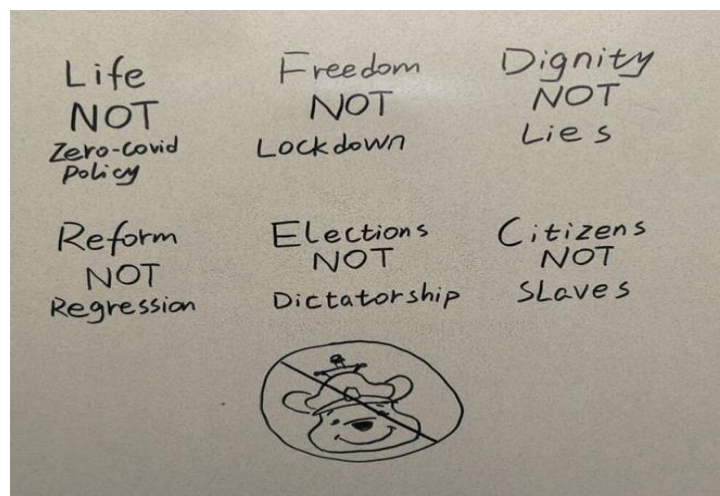 Life
NOT
Zero-covid
policy
Freedom
NOT
Lockdown
Dignity
NOT
Lies
Reform
NOT
Regression
Elections
NOT
Dictatorship
Citizens
NOT
SLaves